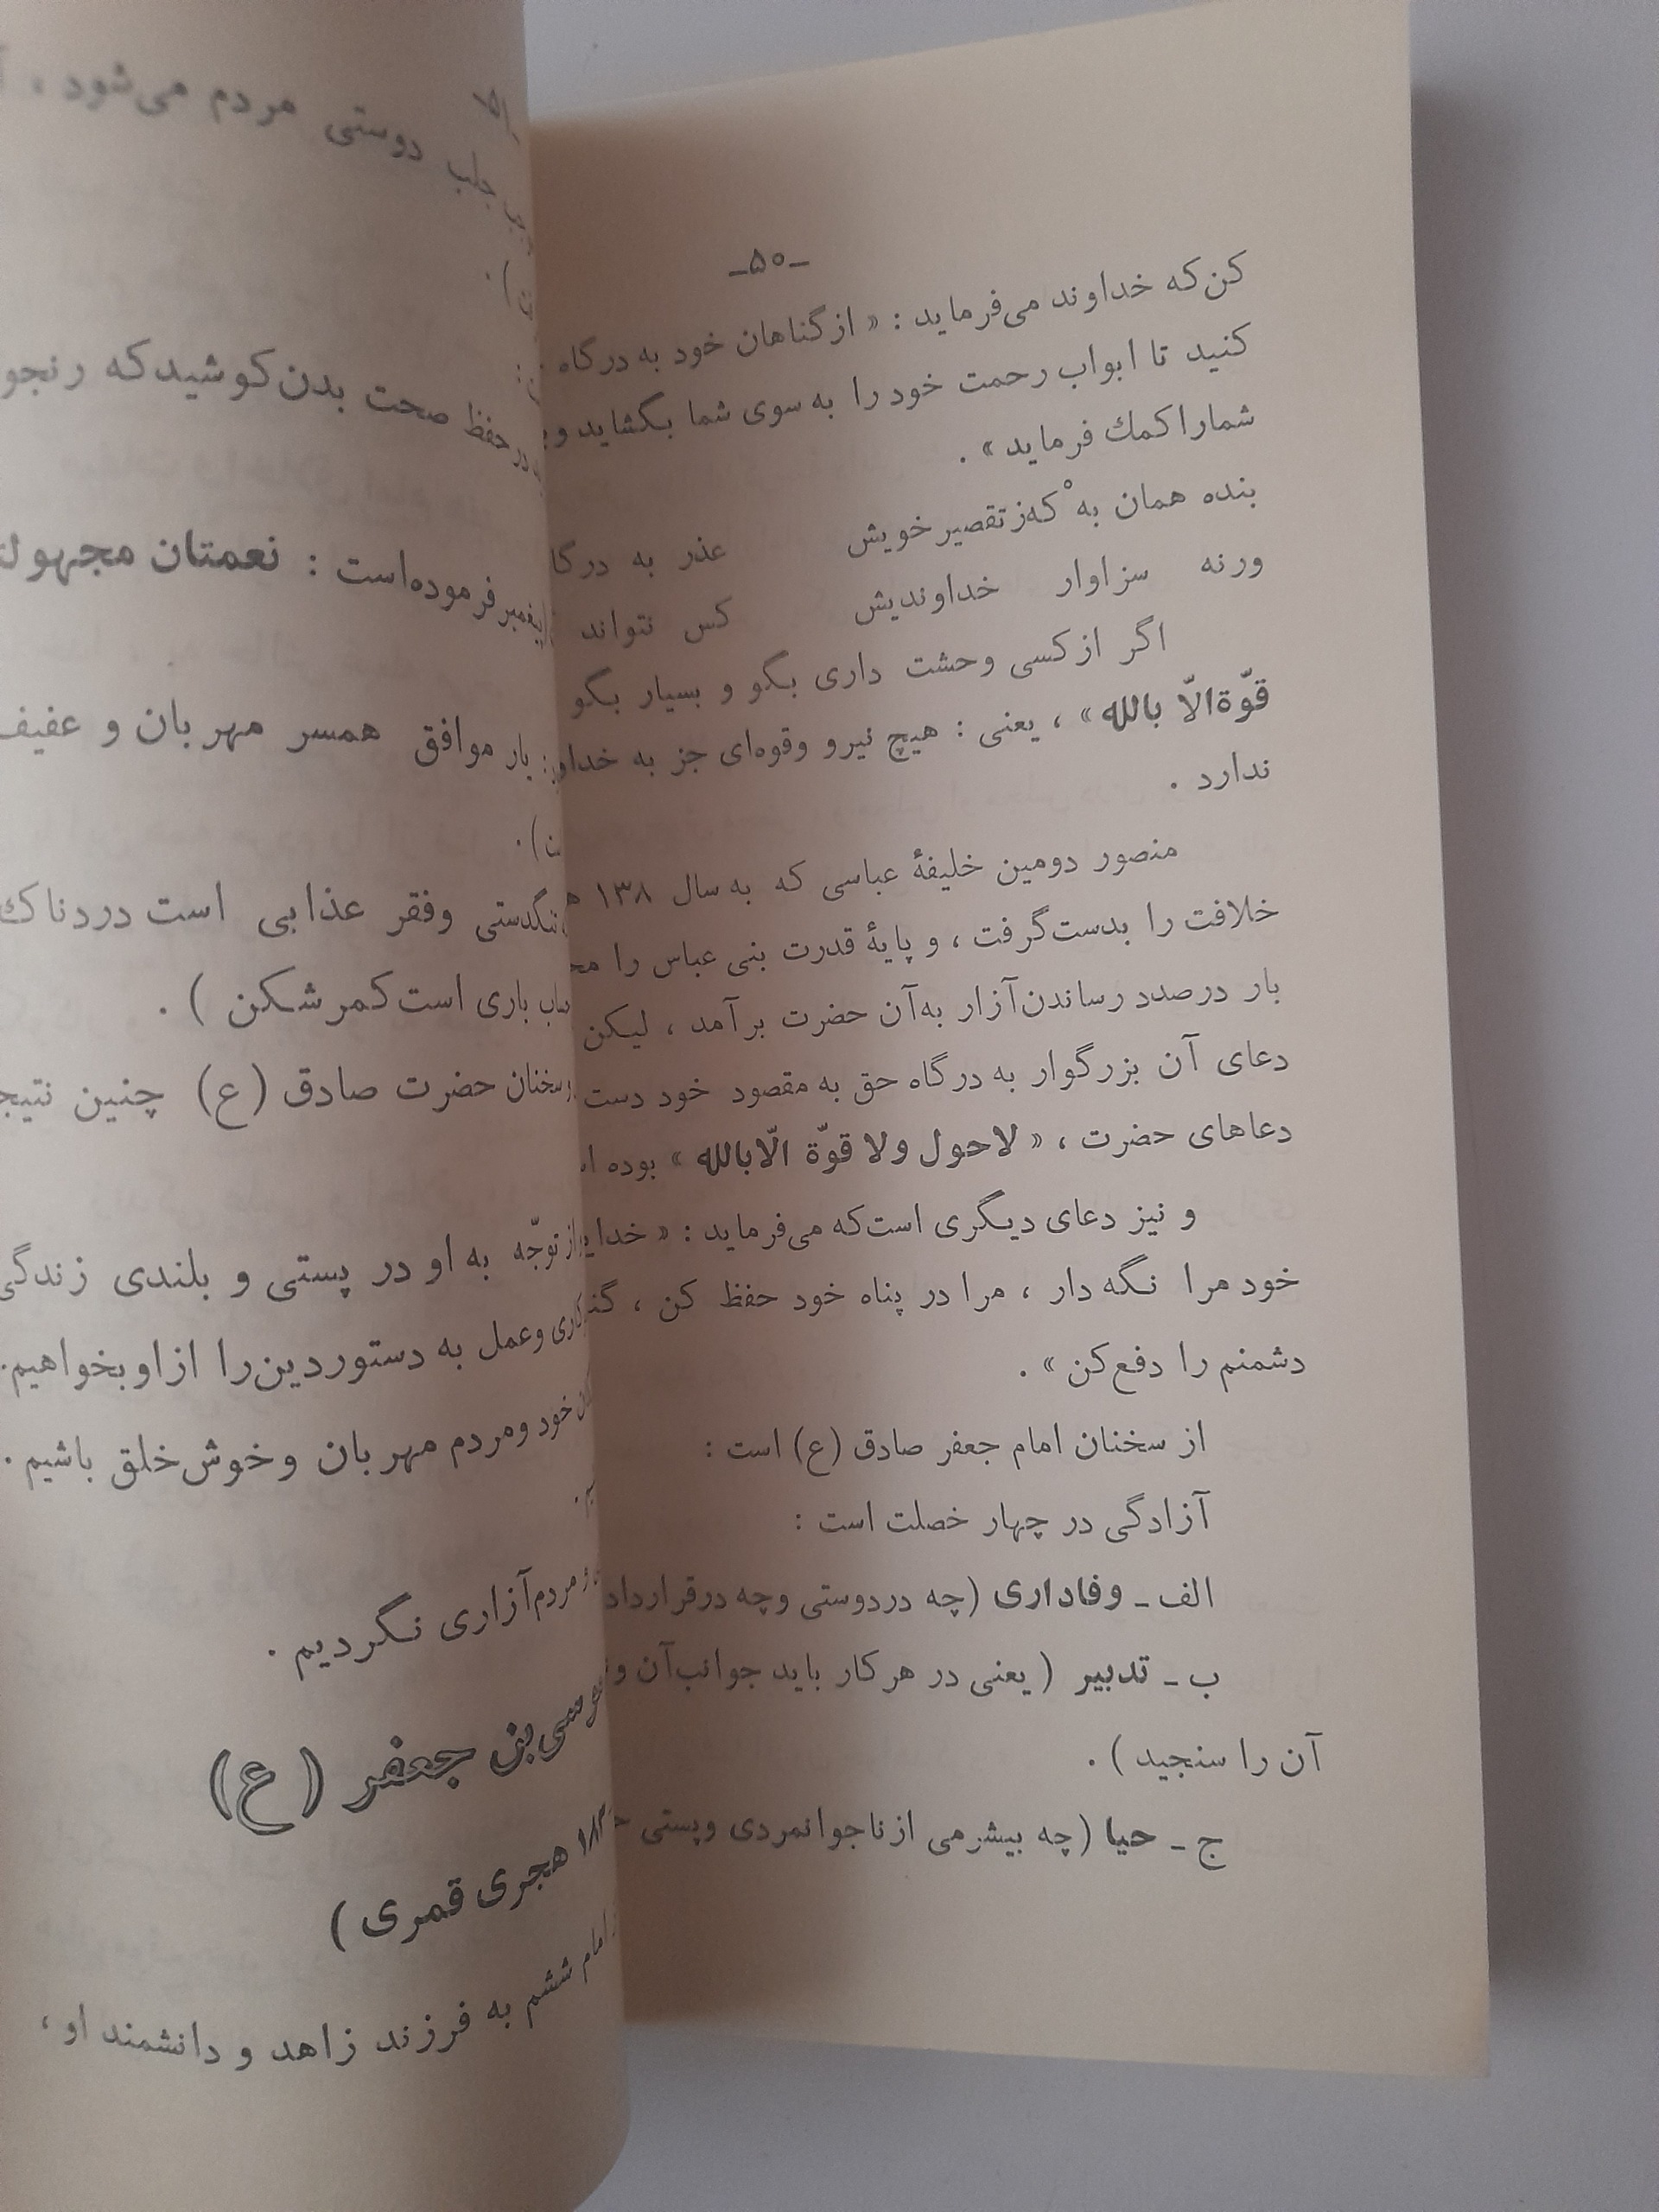 -۵۰-
کن‌که خداوند می‌فرماید : « ازگناهان خود به درگاه
کنید تا ابواب رحمت خود را به سوی شما بگشاید
شماراکمك فرماید » .
بنده همان بهْ که‌ز تقصیر خویش عذر به
ورنه سزاوار خداوندیش کس نتواند
اگر ازکسی وحشت داری بگو و بسیار بگو
قوّةالّا بالله » ، یعنی : هیچ نیرو وقوه‌ای جز به
ندارد .
منصور دومین خلیفهٔ عباسی که به سال ۱۳۸
خلافت را بدست‌گرفت ، و پایهٔ قدرت بنی عباس را
بار درصدد رساندن‌آزار به‌آن حضرت برآمد ، لیکن
دعای آن بزرگوار به درگاه حق به مقصود خود دست
دعاهای حضرت ، « لاحول ولا قوّة الّابالله » بوده
و نیز دعای دیگری است‌که می‌فرماید : «
خود مرا نگه دار ، مرا در پناه خود حفظ کن ،
دشمنم را دفع‌کن » .
از سخنان امام جعفر صادق (ع) است :
آزادگی در چهار خصلت است :
الف ـ وفاداری (چه دردوستی وچه درقرارداد
ب ـ تدبیر ( یعنی در هرکار باید جوانب‌آن
آن را سنجید ) .
ج ـ حیا (چه بیشرمی ازناجوانمردی وپستی
جلب دوستی مردم می‌شود ،
حفظ صحت بدن‌کوشیدکه
فرموده‌است : نعمتان
یار موافق همسر مهربان و
تنگدستی وفقر عذابی است دردناك
باری است‌کمرشکن ) .
سخنان حضرت صادق (ع) چنین
توجّه به او در پستی و بلندی
وعمل به دستوردین‌را ازاوبخواهیم.
خود ومردم مهربان وخوش‌خلق باشیم .
مردم‌آزاری نگردیم .
بن جعفر (ع)
هجری قمری )
امام ششم به فرزند زاهد و دانشمند او ،